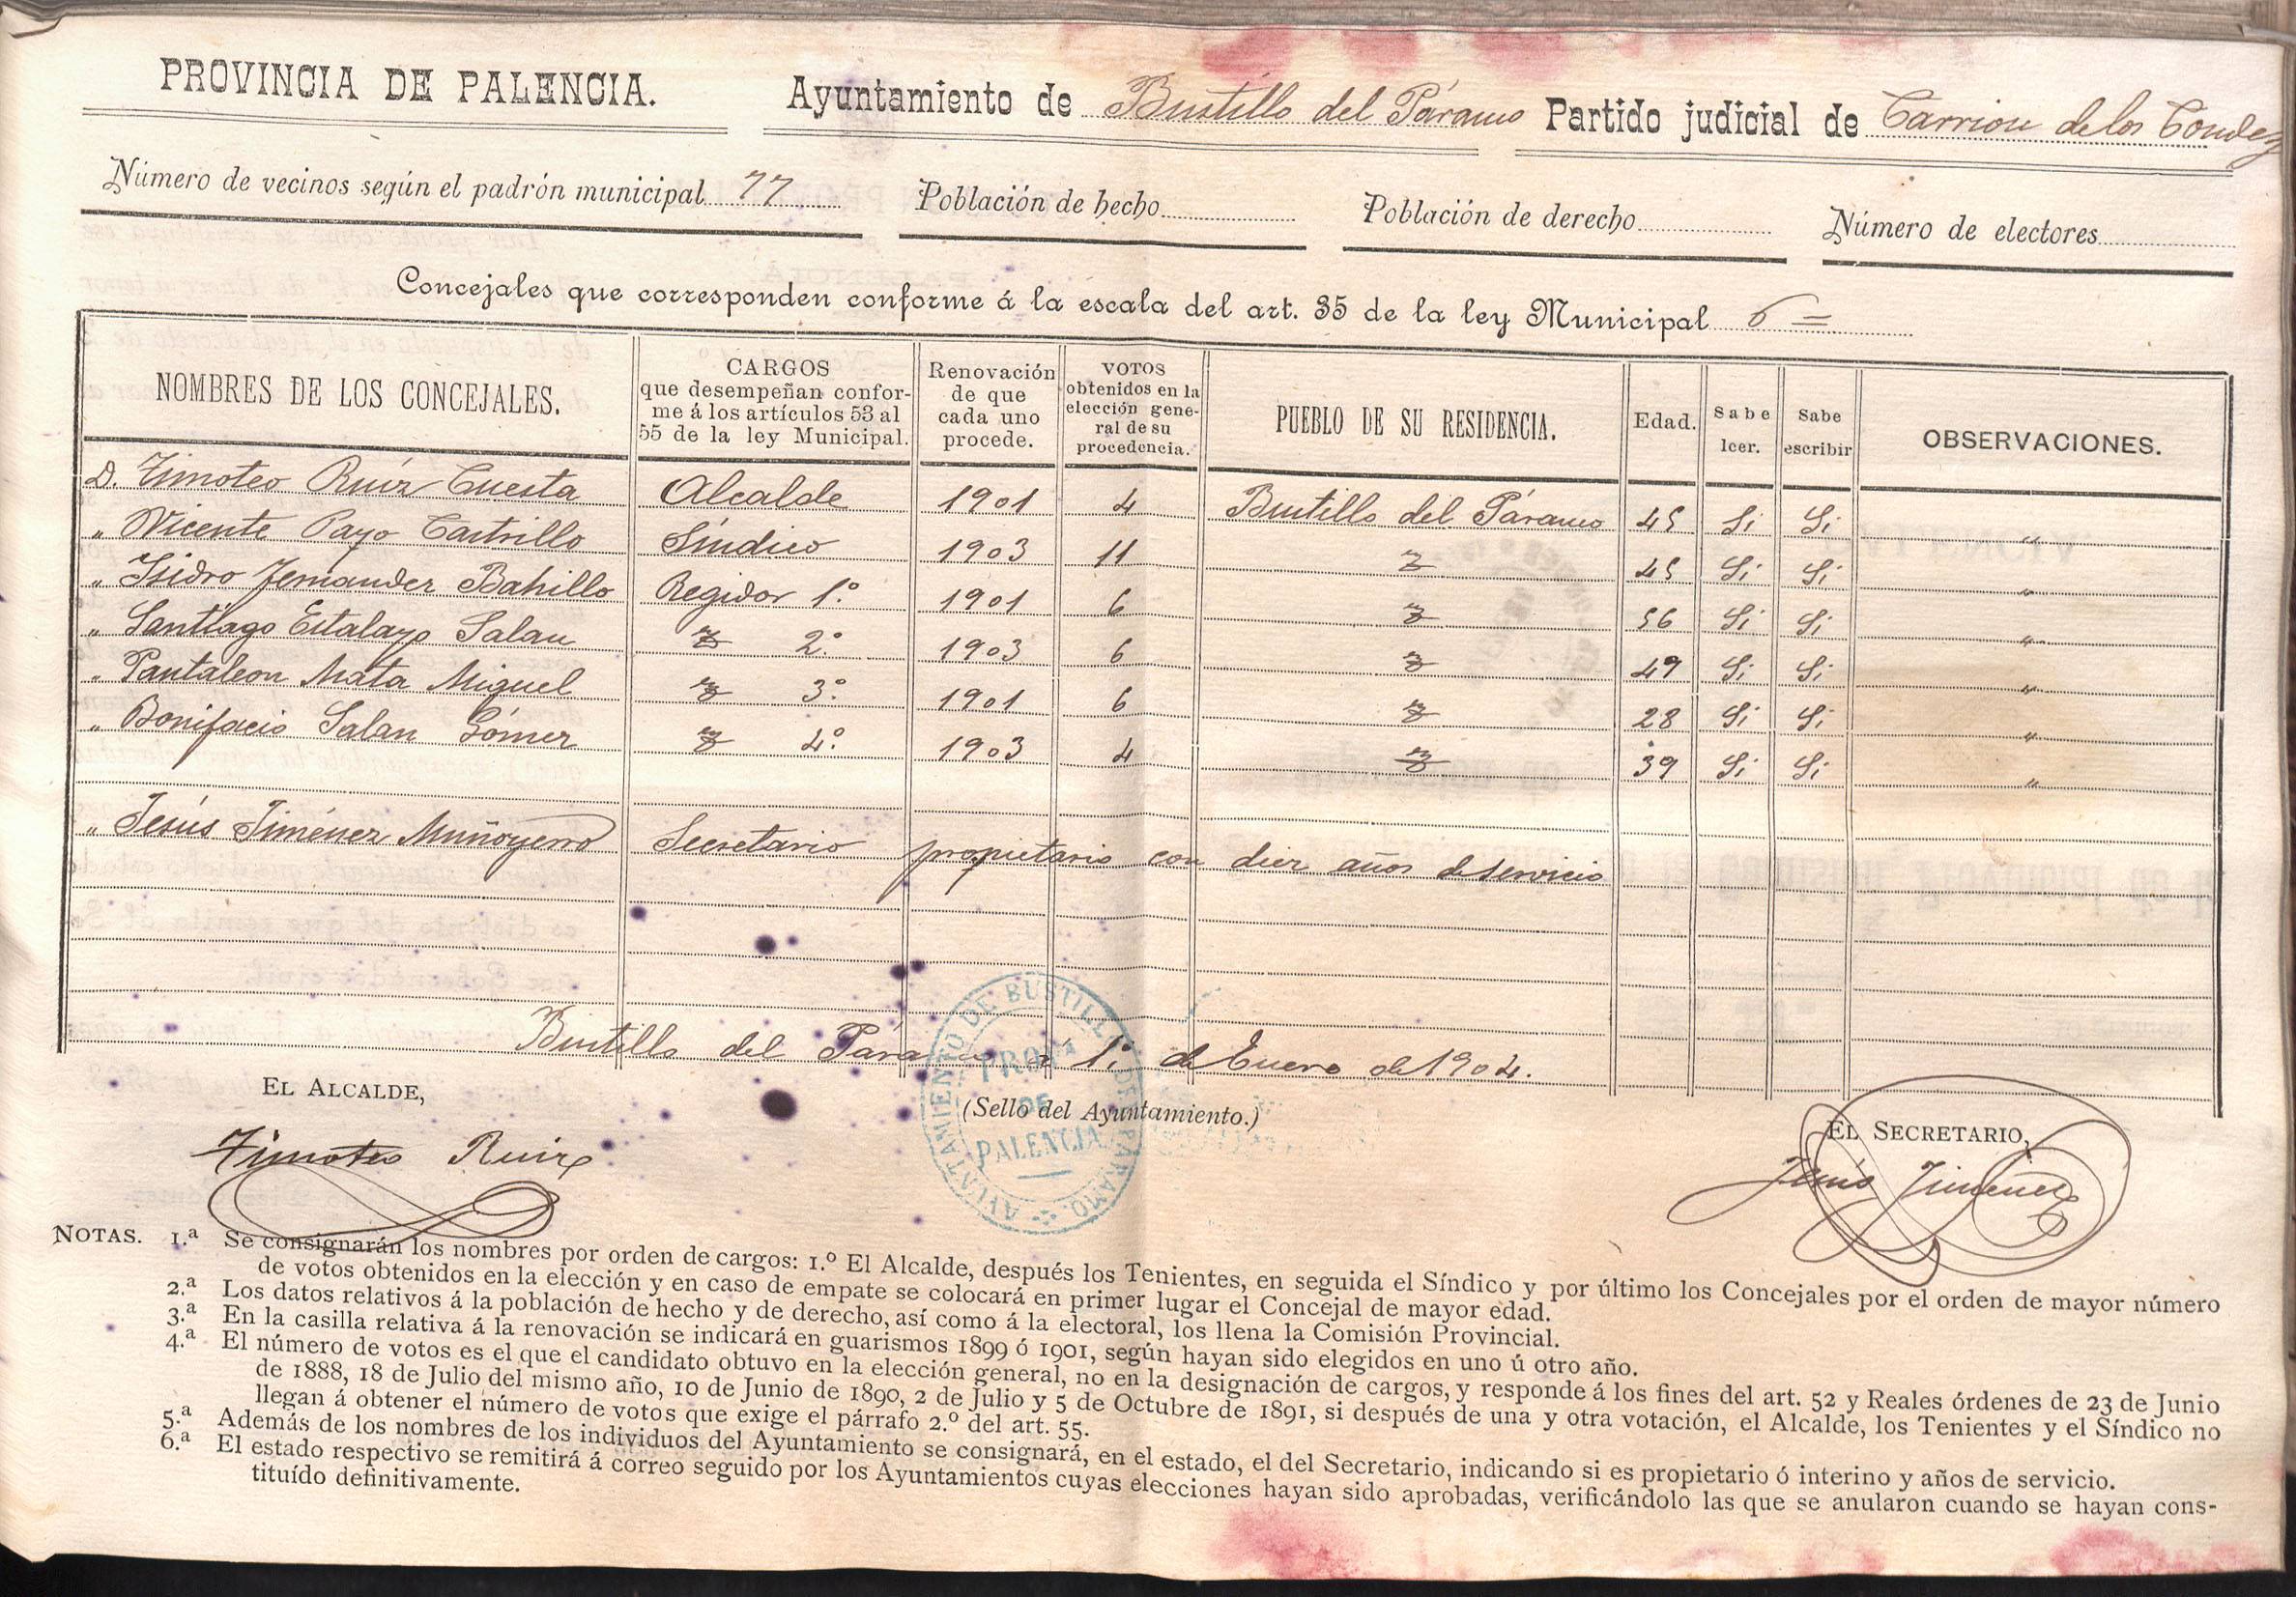 PROVINCIA DE PALENCIA. Ayuntamiento de Bustillo del Páramo Partido judicial de Carrion de los Condes
Número de vecinos según el padrón municipal 77 Población de hecho Población de derecho Número de electores
Concejales que corresponden conforme á la escala del art. 35 de la ley Municipal 6 =
NOMBRES DE LOS CONCEJALES. CARGOS que desempeñan confor- me á los artículos 53 al 55 de la ley Municipal. Renovación de que cada uno procede. VOTOS obtenidos en la elección gene- ral de su procedencia. PUEBLO DE SU RESIDENCIA. Edad. Sabe leer. Sabe escribir OBSERVACIONES.
D. Timoteo Ruíz Cuesta Alcalde 1901 4 Bustillo del Páramo 45 Si Si "
" Vicente Payo Castrillo Síndico 1903 11 " 45 Si Si "
" Isidro Fernandez Bahillo Regidor 1.º 1901 6 " 56 Si Si "
" Santiago Estalayo Salan " 2.º 1903 6 " 49 Si Si "
" Pantaleon Mata Miguel " 3.º 1901 6 " 28 Si Si "
" Bonifacio Salan Gómez " 4.º 1903 4 " 39 Si Si "
" Jesús Jiménez Muñoyerro Secretario propietario con diez años de servicio
Bustillo del Páramo á 1.º de Enero de 1904.
EL ALCALDE,
(Sello del Ayuntamiento.)
EL SECRETARIO,
AYUNTAMIENTO DE BUSTILLO DEL PARAMO
PROVª
DE
PALENCIA
Timoteo Ruiz
Jesús Jimenez
NOTAS. 1.ª Se consignarán los nombres por orden de cargos: 1.º El Alcalde, después los Tenientes, en seguida el Síndico y por último los Concejales por el orden de mayor número
de votos obtenidos en la elección y en caso de empate se colocará en primer lugar el Concejal de mayor edad.
2.ª Los datos relativos á la población de hecho y de derecho, así como á la electoral, los llena la Comisión Provincial.
3.ª En la casilla relativa á la renovación se indicará en guarismos 1899 ó 1901, según hayan sido elegidos en uno ú otro año.
4.ª El número de votos es el que el candidato obtuvo en la elección general, no en la designación de cargos, y responde á los fines del art. 52 y Reales órdenes de 23 de Junio
de 1888, 18 de Julio del mismo año, 10 de Junio de 1890, 2 de Julio y 5 de Octubre de 1891, si después de una y otra votación, el Alcalde, los Tenientes y el Síndico no
llegan á obtener el número de votos que exige el párrafo 2.º del art. 55.
5.ª Además de los nombres de los individuos del Ayuntamiento se consignará, en el estado, el del Secretario, indicando si es propietario ó interino y años de servicio.
6.ª El estado respectivo se remitirá á correo seguido por los Ayuntamientos cuyas elecciones hayan sido aprobadas, verificándolo las que se anularon cuando se hayan cons-
tituído definitivamente.